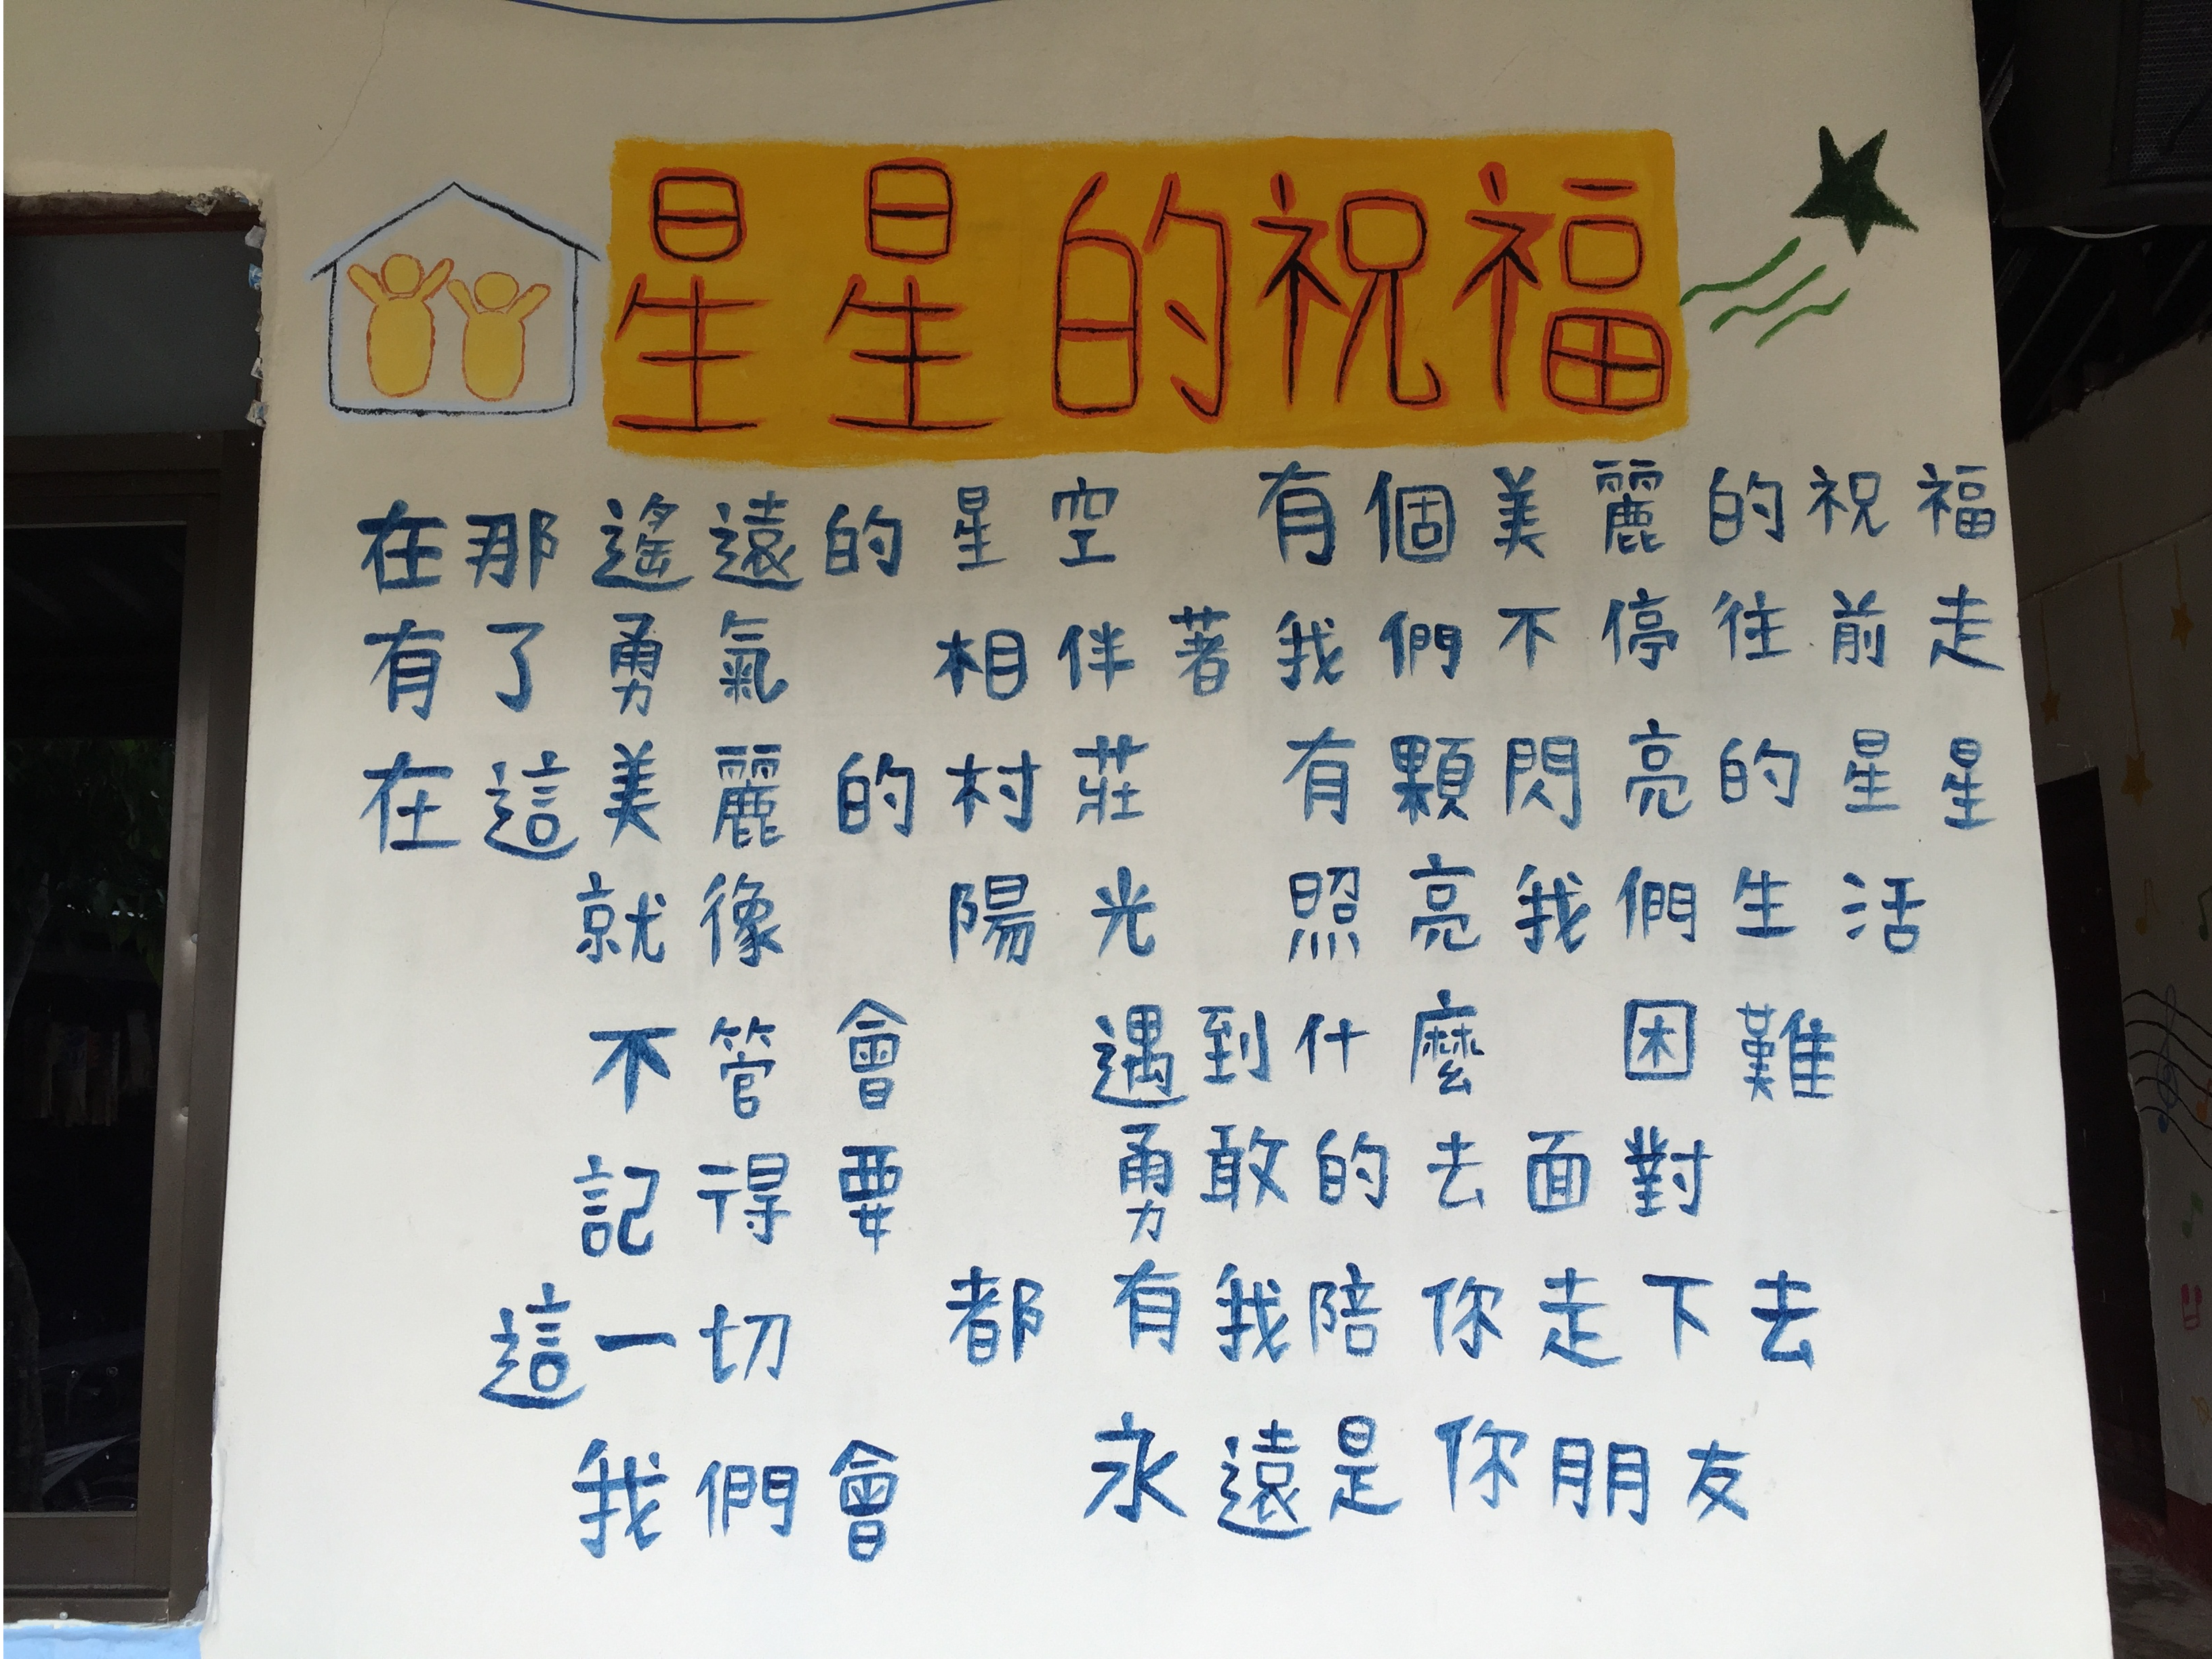 星星的祝福
在那遙遠的星空 有個美麗的祝福
有了勇氣 相伴著我們不停往前走
在這美麗的村莊 有顆閃亮的星星
就像 陽光 照亮我們生活
不管會 遇到什麼 困難
記得要 勇敢的去面對
這一切 都有我陪你走下去
我們會 永遠是你朋友